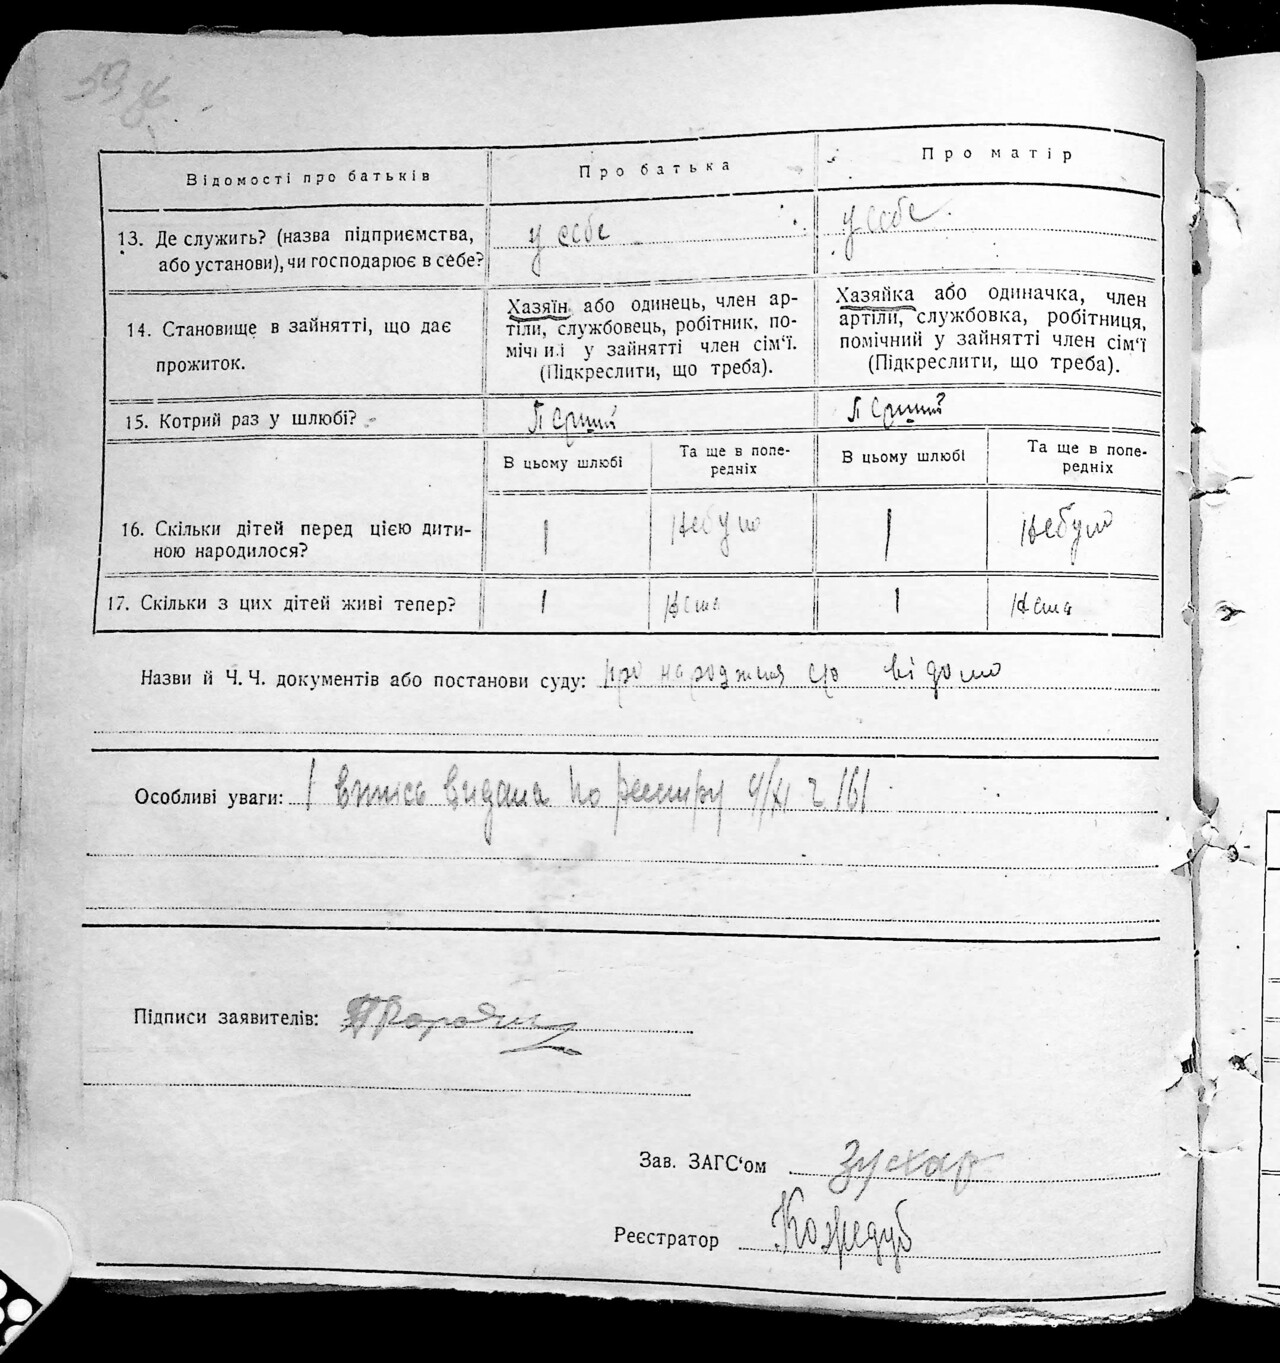 59
Відомості про батьків
Про батька
Про матір
13. Де служить? (назва підприємства,
або установи), чи господарює в себе?
у себе
у себе
14. Становище в зайнятті, що дає
прожиток.
Хазяїн або одинець, член ар-
тіли, службовець, робітник, по-
мічний у зайнятті член сім'ї.
(Підкреслити, що треба).
Хазяйка або одиначка, член
артіли, службовка, робітниця,
помічний у зайнятті член сім'ї
(Підкреслити, що треба).
15. Котрий раз у шлюбі?
Перший
Перший
В цьому шлюбі
Та ще в попе-
редніх
В цьому шлюбі
Та ще в попе-
редніх
16. Скільки дітей перед цією дити-
ною народилося?
1
Небуло
1
Небуло
17. Скільки з цих дітей живі тепер?
1
Нема
1
Нема
Назви й Ч. Ч. документів або постанови суду: про народження відомо
Особливі уваги: 1 впись видана по реєстру ч 161
Підписи заявителів:
Зав. ЗАГС'ом
Реєстратор Кожедуб